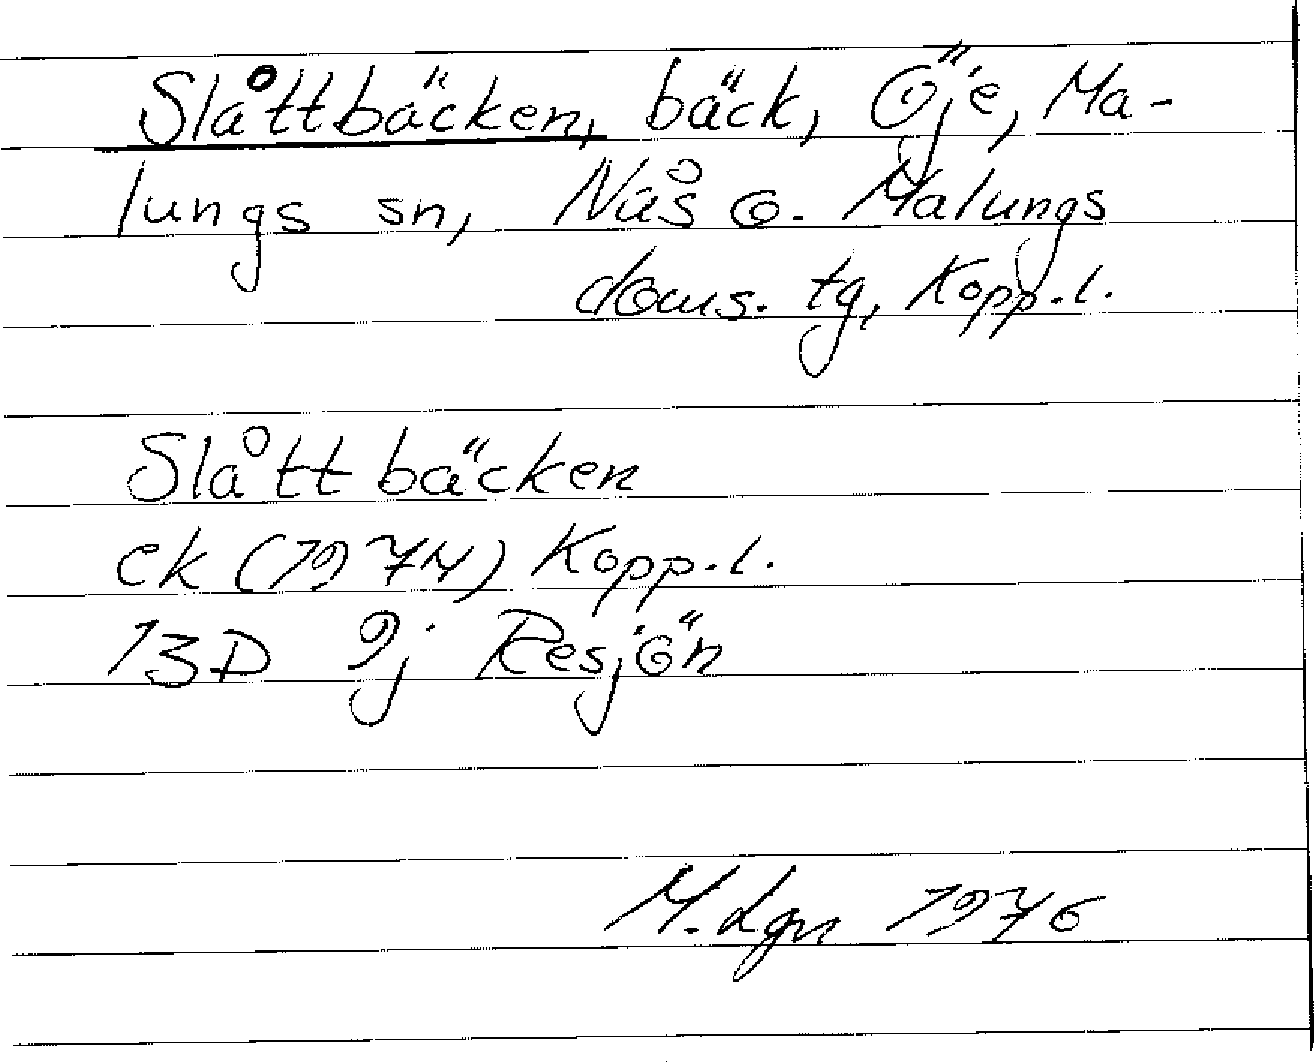 Slåttbäcken, bäck, Öje, Ma-
lungs sn, Nås o. Malungs
doms. tg, Kopp.l.
Slåttbäcken
ek (1974) Kopp.l.
13D 9j Resjön
M. Lgn 1976